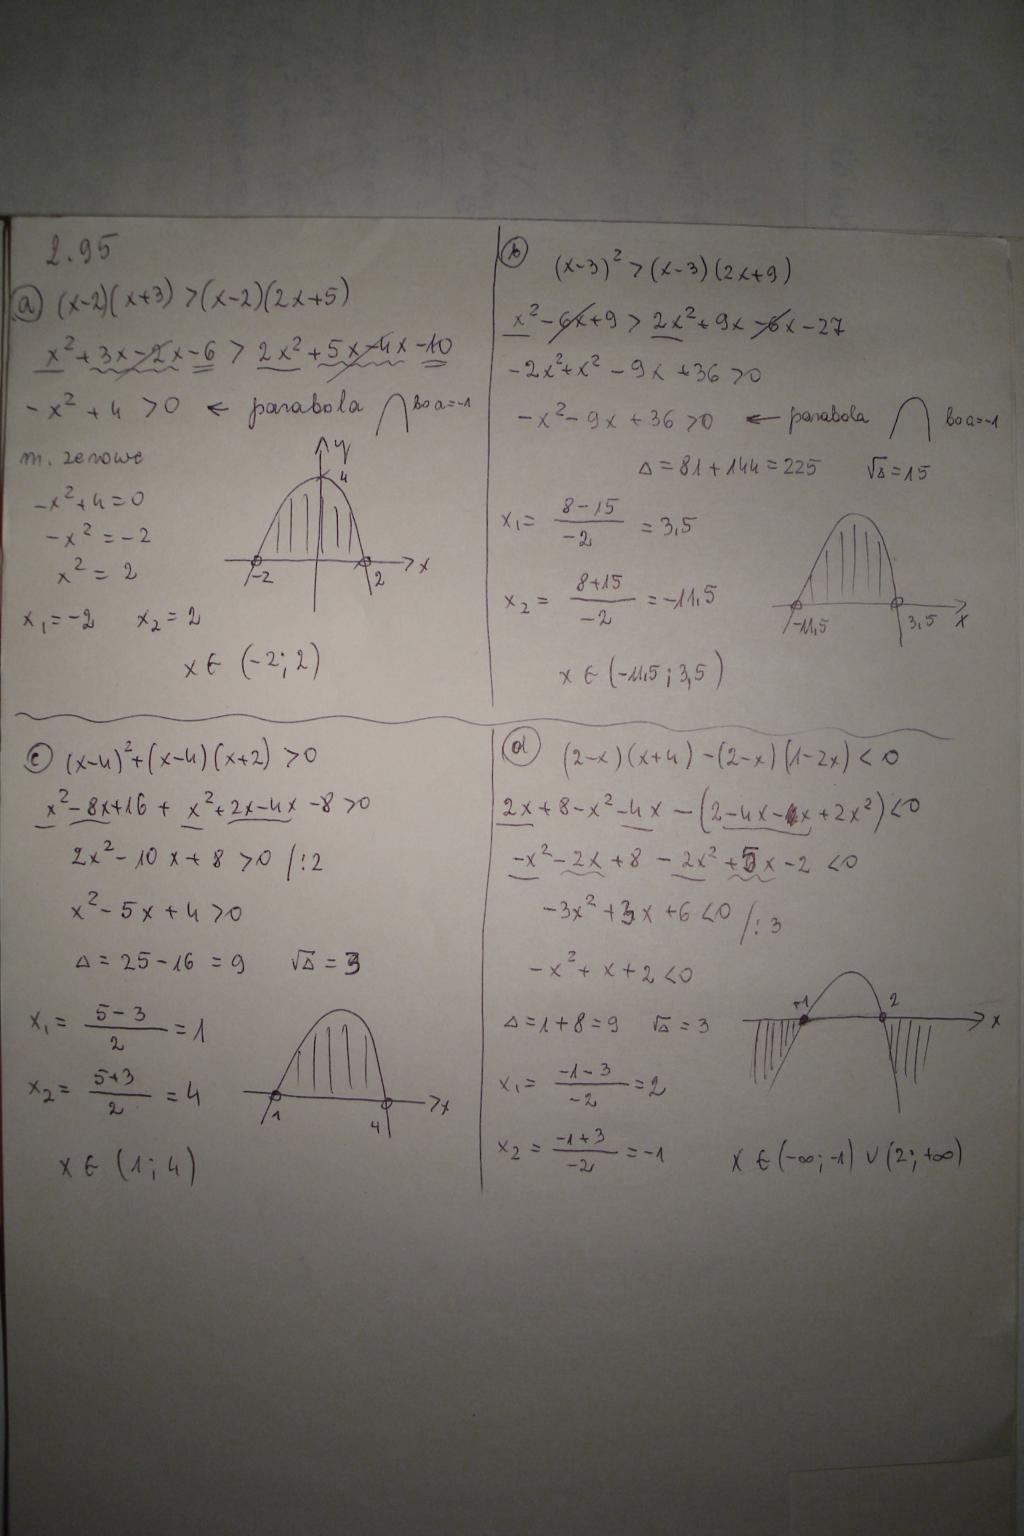 2.95
a) (x-2)(x+3) > (x-2)(2x+5)
x² + 3x - 2x - 6 > 2x² + 5x - 4x - 10
-x² + 4 > 0 ← parabola ∩ bo a=-1
m. zerowe
-x² + 4 = 0
-x² = -2
x² = 2
x₁ = -2 x₂ = 2
y
4
-2
2
x
x ∈ (-2; 2)
b) (x-3)² > (x-3)(2x+9)
x² - 6x + 9 > 2x² + 9x - 6x - 27
-2x² + x² - 9x + 36 > 0
-x² - 9x + 36 > 0 ← parabola ∩ bo a=-1
Δ = 81 + 144 = 225 √Δ = 15
x₁ = (8-15)/(-2) = 3,5
x₂ = (8+15)/(-2) = -11,5
-11,5
3,5
x
x ∈ (-11,5; 3,5)
c) (x-4)² + (x-4)(x+2) > 0
x² - 8x + 16 + x² + 2x - 4x - 8 > 0
2x² - 10x + 8 > 0 /:2
x² - 5x + 4 > 0
Δ = 25 - 16 = 9 √Δ = 3
x₁ = (5-3)/2 = 1
x₂ = (5+3)/2 = 4
1
4
x
x ∈ (1; 4)
d) (2-x)(x+4) - (2-x)(1-2x) < 0
2x + 8 - x² - 4x - (2 - 4x - x + 2x²) < 0
-x² - 2x + 8 - 2x² + 5x - 2 < 0
-3x² + 3x + 6 < 0 /:3
-x² + x + 2 < 0
Δ = 1 + 8 = 9 √Δ = 3
x₁ = (-1-3)/(-2) = 2
x₂ = (-1+3)/(-2) = -1
-1
2
x
x ∈ (-∞; -1) ∪ (2; +∞)